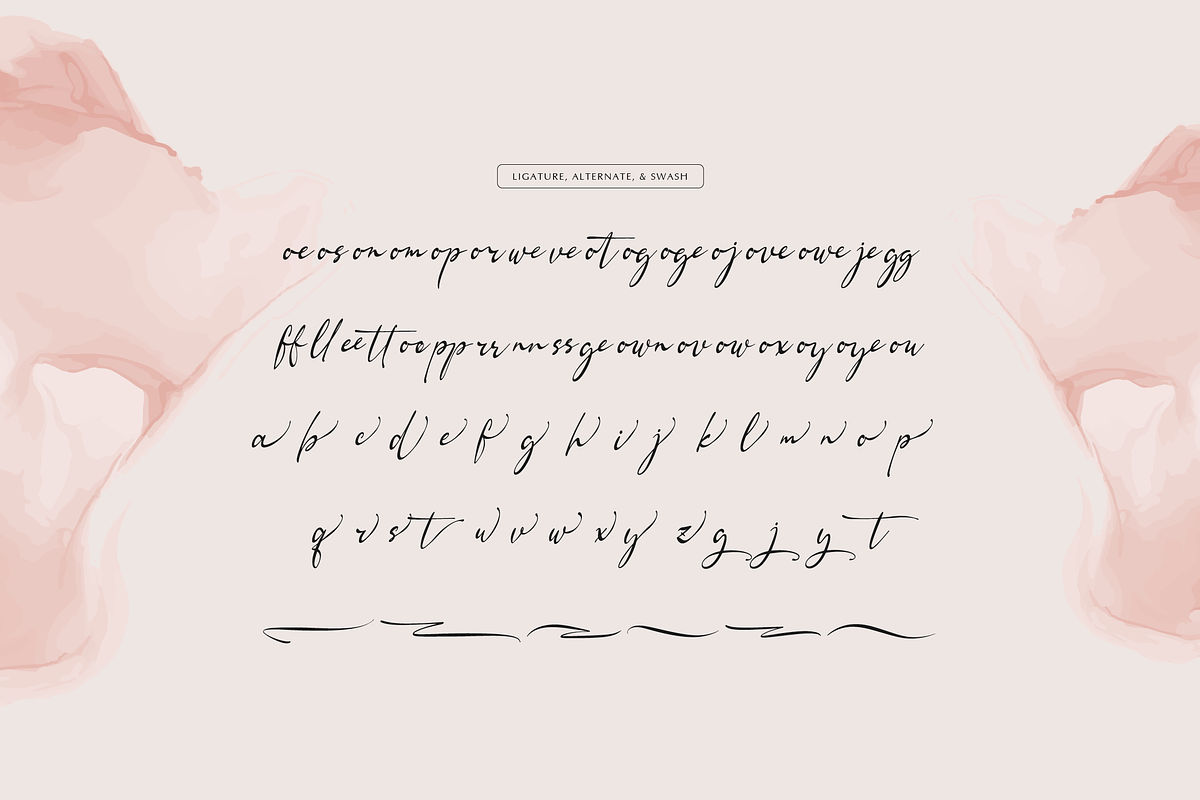 LIGATURE, ALTERNATE, & SWASH
oe os on om op or we ve ot og oge oj ove owe je gg
ff ll ee tt oo pp rr nn ss ge own ov ow ox oy oye ou
a b c d e f g h i j k l m n o p
q r s t u v w x y z g j y t